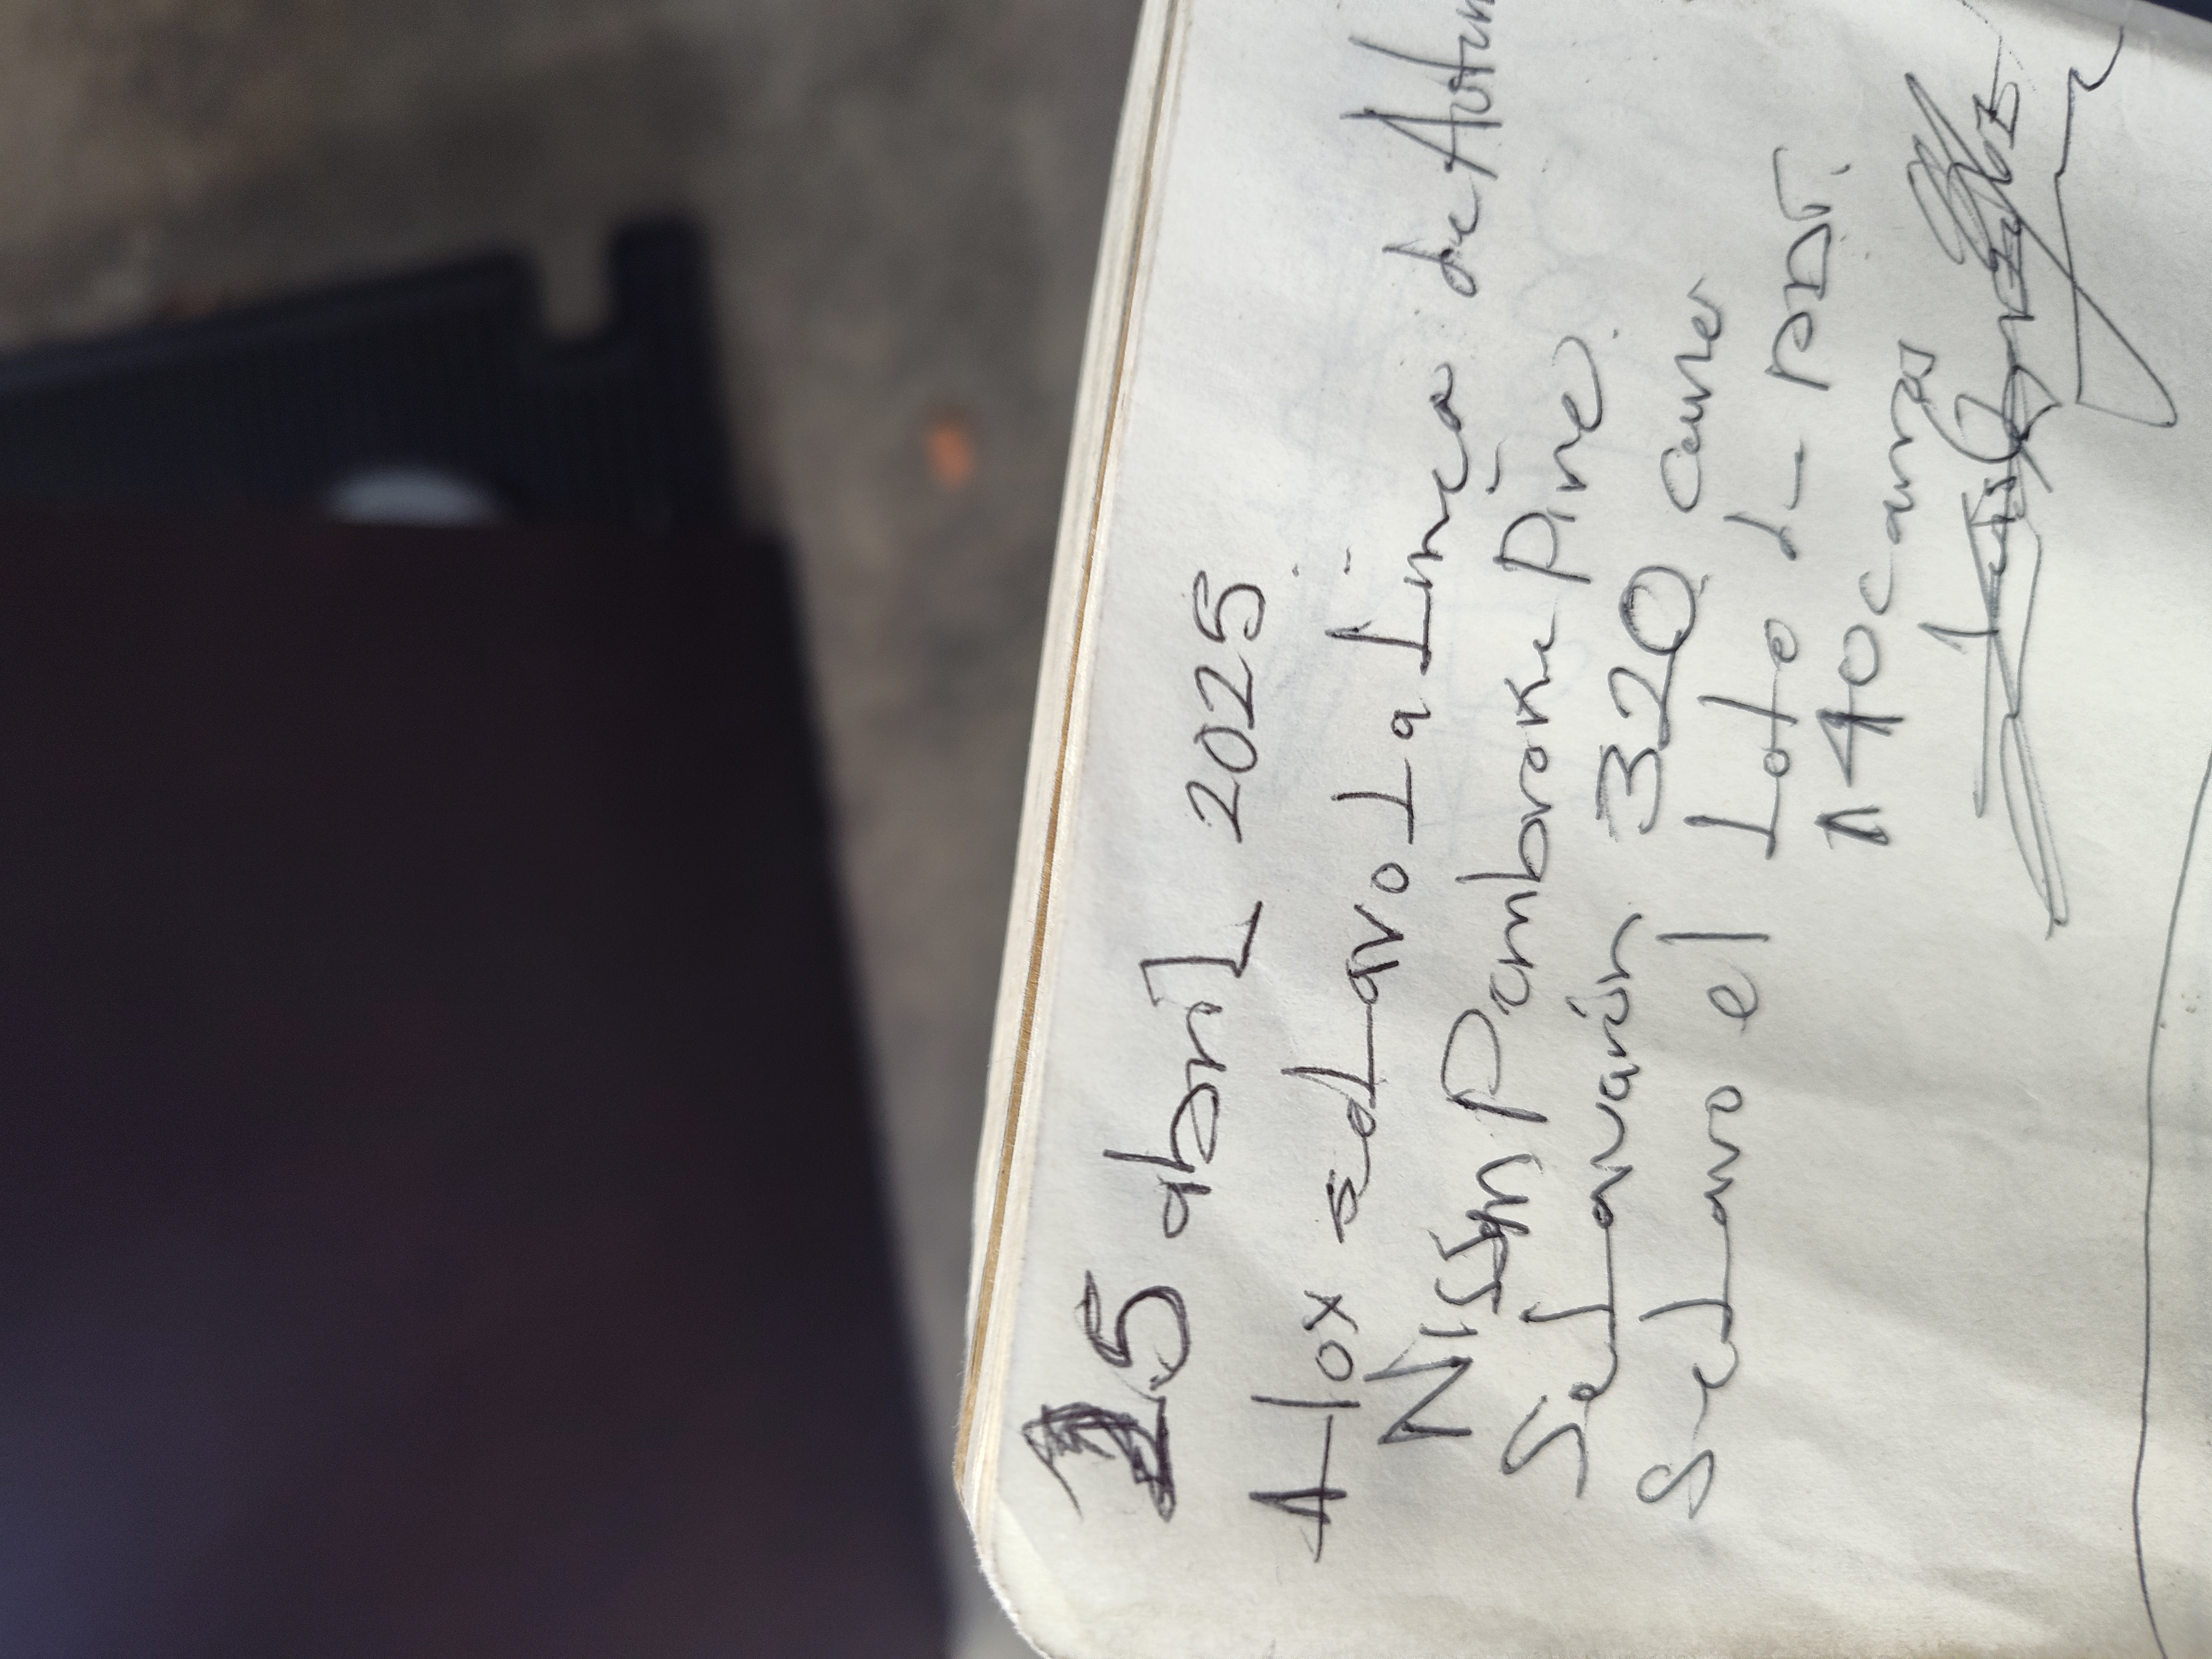 25 abril 2025
Alox se Lavo La Linea de Autun
Nissan Pembroke Pine.
Se Lavarón 320 carro
Se Lavo el Lote d- PDI.
140 carros